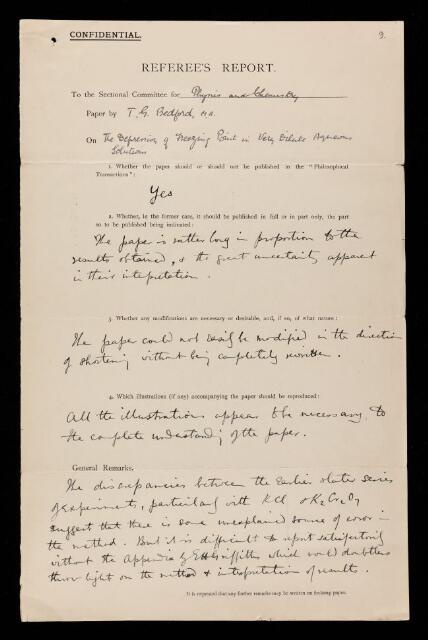 CONFIDENTIAL.
9.
REFEREE'S REPORT.
To the Sectional Committee for Physics and Chemistry
Paper by T. G. Bedford, esq.
On The Depression of Freezing Point in Very Dilute Aqueous
Solutions
1. Whether the paper should or should not be published in the "Philosophical
Transactions":
Yes
2. Whether, in the former case, it should be published in full or in part only, the part
so to be published being indicated:
The paper is rather long in proportion to the
results obtained, & the great uncertainty apparent
in their interpretation.
3 Whether any modifications are necessary or desirable, and, if so, of what nature:
The paper could not easily be modified in the direction
of shortening without being completely rewritten.
4. Which illustrations (if any) accompanying the paper should be reproduced:
All the illustrations appear to be necessary to
the complete understanding of the paper.
General Remarks.
The discrepancies between the earlier & later series
of experiments, particularly with KCl & K2Cr2O7
suggest that there is some unexplained source of error in
the method. But it is difficult to report satisfactorily
without the Appendix by E H Griffiths which would doubtless
throw light on the method & interpretation of results.
It is requested that any further remarks may be written on foolscap paper.